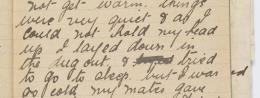 not get warm. things
were very quiet & as I
could not hold my head
up I layed down in
the dug out, & tried
to go to sleep. but I was
so cold my mates gave